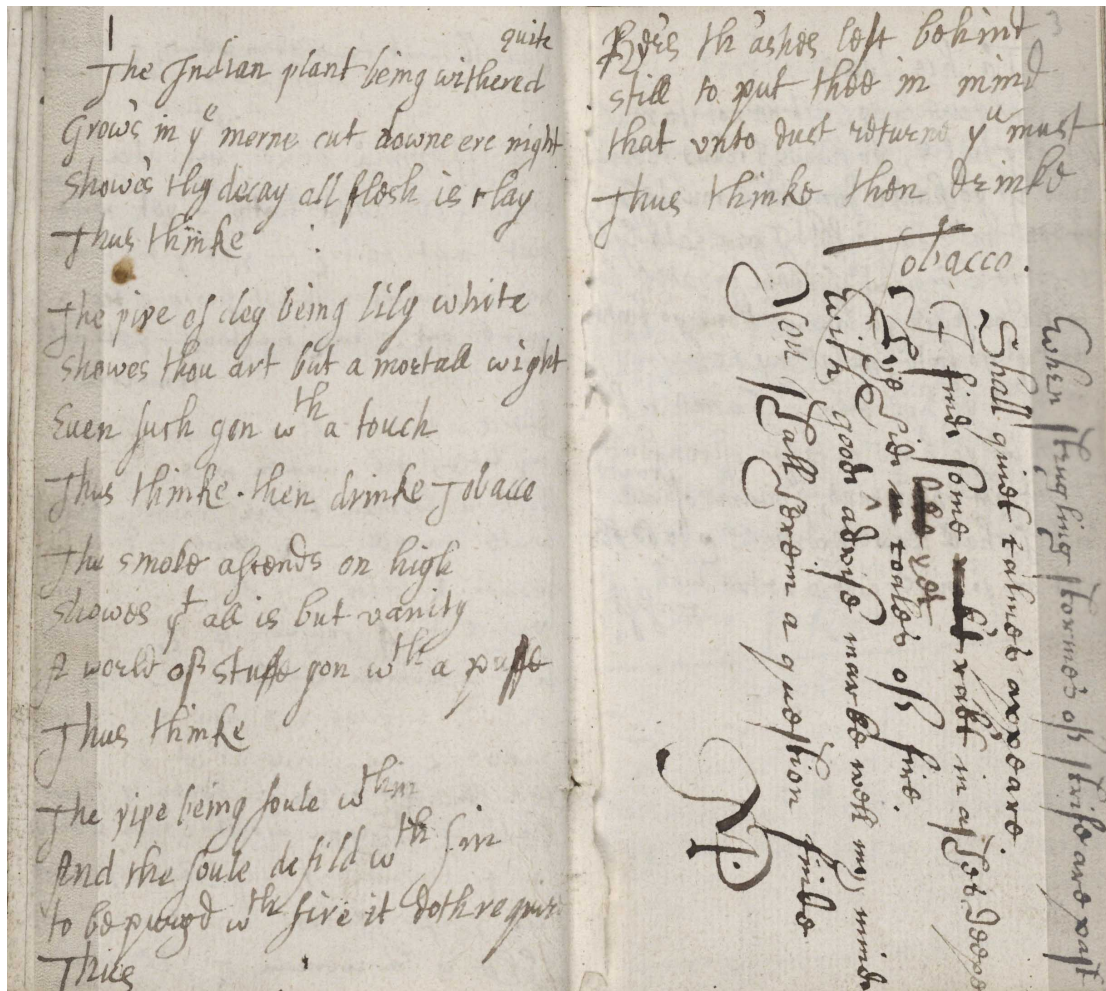 1
quite
The Indian plant being withered
Grow's in yᵉ morne cut downe ere night
Showes thy decay all flesh is clay
Thus thinke
The pipe of cley being lily white
Showes thou art but a mortall wight
Even such gon wᵗʰ a touch
Thus thinke then drinke Tobacco
The smoke assends on high
Showes yᵗ all is but vanity
A world of stuffe gon wᵗʰ a puffe
Thus thinke
The pipe being foule wᵗʰin
And the soule defild wᵗʰ sin
to be purgd wᵗʰ fire it doth requir
Thus
3
Her's th'ashes left behind
still to put thee in mind
that unto dust returne yᵘ must
Thus thinke then drinke
Tobacco.
When strugling stormes of strife are past
Shall quiet calmes appeare.
I find some rakt in ashes deepe
lie yet
Live coales of fire.
With good advise marke well my minde
You shall herein a question finde